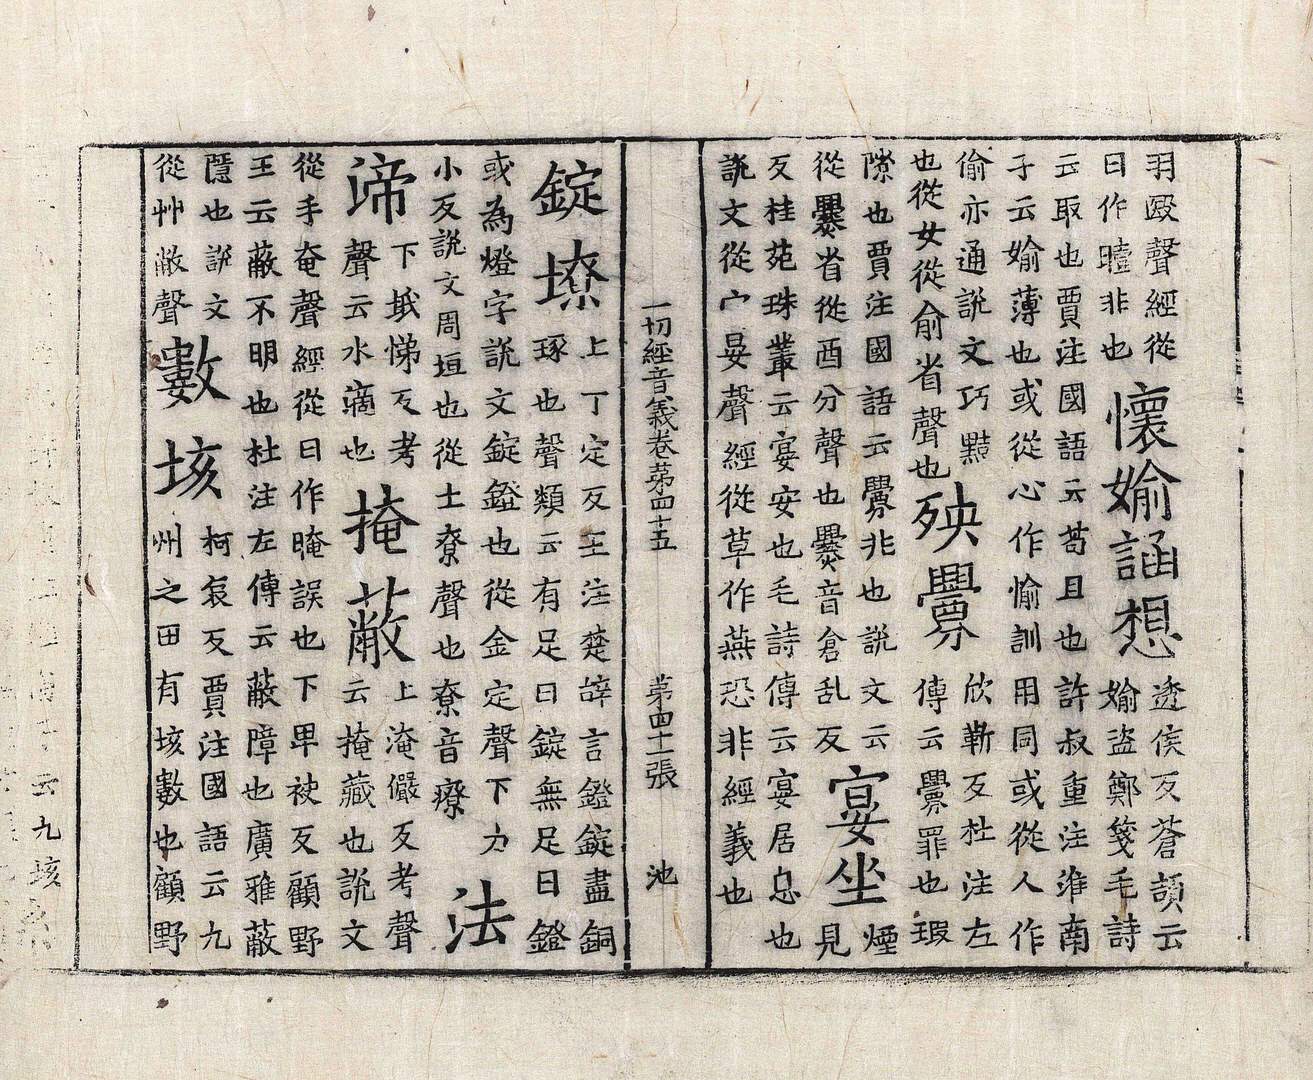 羽殹聲經從
曰作曀非也
懷婾謟想
透侯反蒼頡云婾盜鄭箋毛詩
云取也賈注國語云苟且也許叔重注淮南
子云婾薄也或從心作愉訓用同或從人作
偷亦通說文巧黠
也從女從俞省聲也
殃釁
欣靳反杜注左傳云釁罪也瑕
隙也賈注國語云釁非也說文云
從爨省從酉分聲也爨音倉乱反
宴坐
煙見
反桂苑珠叢云宴安也毛詩傳云宴居息也
說文從宀妟聲經從草作燕恐非經義也
一切經音義卷第四十五 第四十二張 池
錠墽
上丁定反王注楚辭言鐙錠盡銅
琢也聲類云有足曰錠無足曰鐙
或為燈字說文錠鐙也從金定聲下力
小反說文周垣也從土尞聲也尞音療
法
渧
下坻悌反考
聲云水滴也
掩蔽
上淹儼反考聲
云掩藏也說文
從手奄聲經從日作晻誤也下卑袂反顧野
王云蔽不明也杜注左傳云蔽障也廣雅蔽
隱也說文
從艸敝聲
數垓
柯哀反賈注國語云九
州之田有垓數也顧野
云九垓